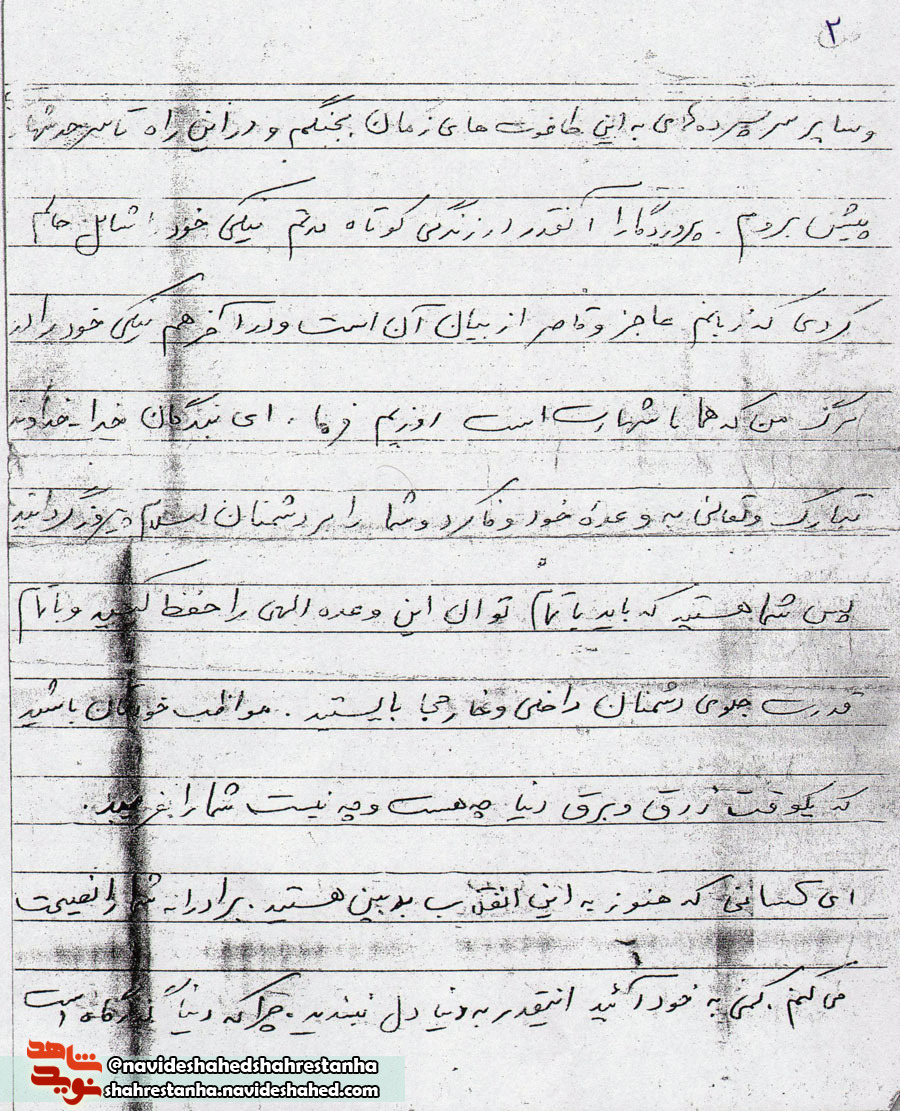 ۲
و سایر سرسپرده‌های به این طاغوت های زمان بجنگم و در این راه تا سرحد شهادت
پیش بروم . پروردگارا آنقدر در زندگی کوتاه مدتم نیکی خود را شامل حالم
کردی که زبانم عاجز و قاصر از بیان آن است و در آخر هم نیکی خود را در
مرگ من که همانا شهادت است روزیم فرما . ای بندگان خدا - خداوند
تبارک و تعالی به وعده خود وفا کرد و شما را بر دشمنان اسلام پیروز گردانید
پس شما هستید که باید با تمام توان این وعده الهی را حفظ کنید و با تمام
قدرت جلوی دشمنان داخلی و خارجی بایستید . مواظب خودتان باشید
که یکوقت زرق و برق دنیا چه هست و چه نیست شما را بفریبد .
ای کسانی که هنوز به این انقلاب بدبین هستید . برادرانه شما را نصیحت
می کنم . کمی به خود آئید اینقدر به دنیا دل نبندید . چرا که دنیا گذرگاه است
شاهد
نوید
@navideshahedshahrestanha
shahrestanha.navideshahed.com